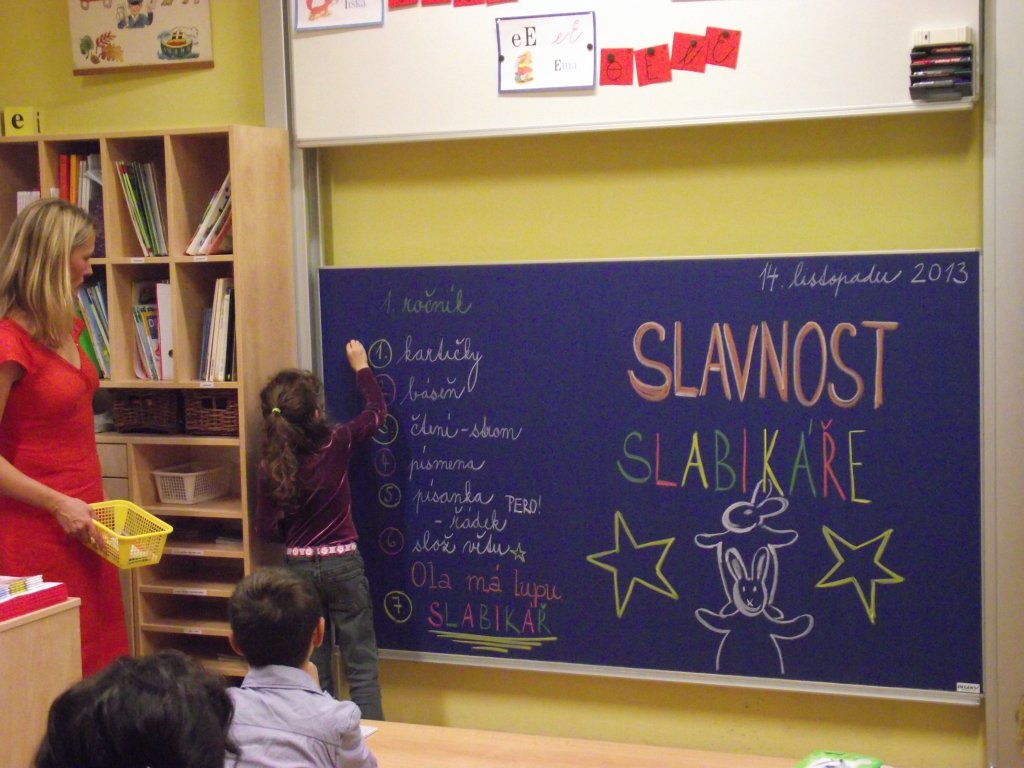 Liška
eE eE
Ema
e i
14. listopadu 2013
1. ročník
1. kartičky
2. báseň
3. čtení - strom
4. písmena
5. písanka PERO!
- řádek
6. slož větu
Ola má lupu
7 SLABIKÁŘ
SLAVNOST
SLABIKÁŘE